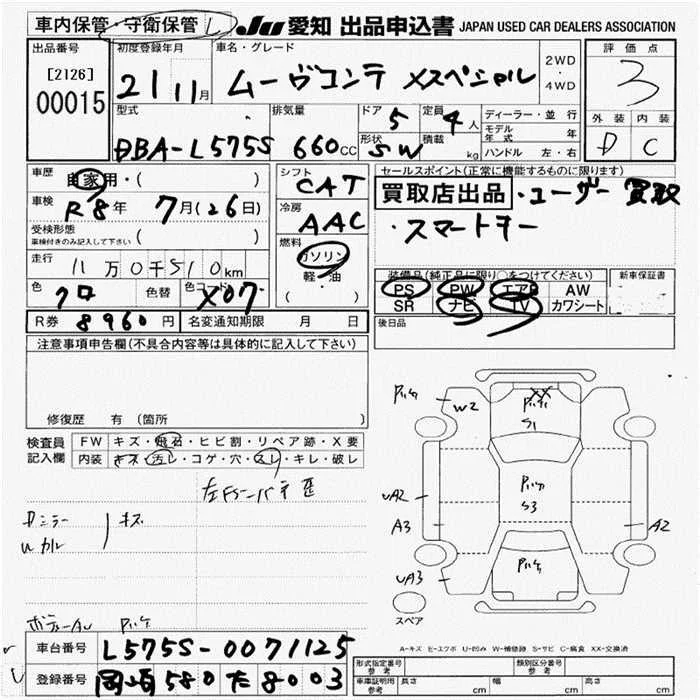 車内保管・守衛保管 L JU 愛知 出品申込書 JAPAN USED CAR DEALERS ASSOCIATION
出品番号 初度登録年月 車名・グレード 2WD ・ 4WD 評価点
[2126] 00015 21 11月 ムーヴコンテ Xスペシャル 3
型式 排気量 ドア 5 定員 4人 ディーラー・並行 外装 内装
DBA-L575S 660cc 形状 SW 積載 kg モデル年式 年 D C
ハンドル 左・右
車歴 自家用・( ) シフト CAT セールスポイント(正常に機能するものに限ります)
車検 R8年 7月(26日) 冷房 AAC 買取店出品・ユーザー買取
受検形態 車検付きのみ記入して下さい ( ) ・スマートキー
走行 11万0千510km 燃料 ガソリン 軽・油 ( ) 装備品(純正品に限り○をつけてください) 新車保証書
色 クロ 色替 色コード X07 PS PW エアB AW
SR ナビ TV カワシート
R券 8960円 名変通知期限 月 日 後日品
注意事項申告欄(不具合内容等は具体的に記入して下さい)
修復歴 有 (箇所 )
検査員記入欄 FW キズ・飛石・ヒビ割・リペア跡・X要
内装 キズ・汚レ・コゲ・穴・スレ・キレ・破レ
キズ
W2 XX
S1
S3
UA2
A3 A2
UA3
スペア
A-キズ E-エクボ U-凹み W-補修跡 S-サビ C-腐食 XX-交換済
車台番号 L575S-0071125
登録番号 岡崎580た8003
形式指定番号 参考 類別区分番号 参考
車庫証明用 参考 長さ cm 幅 cm 高さ cm